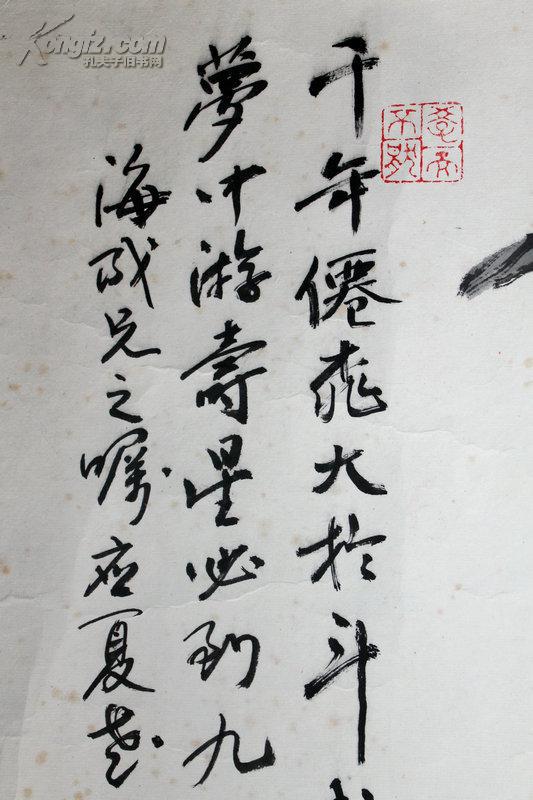 千年僊桃大於斗
夢中游壽星必到九
海成兄之嘱应夏
Kongfz.com
孔夫子旧书网